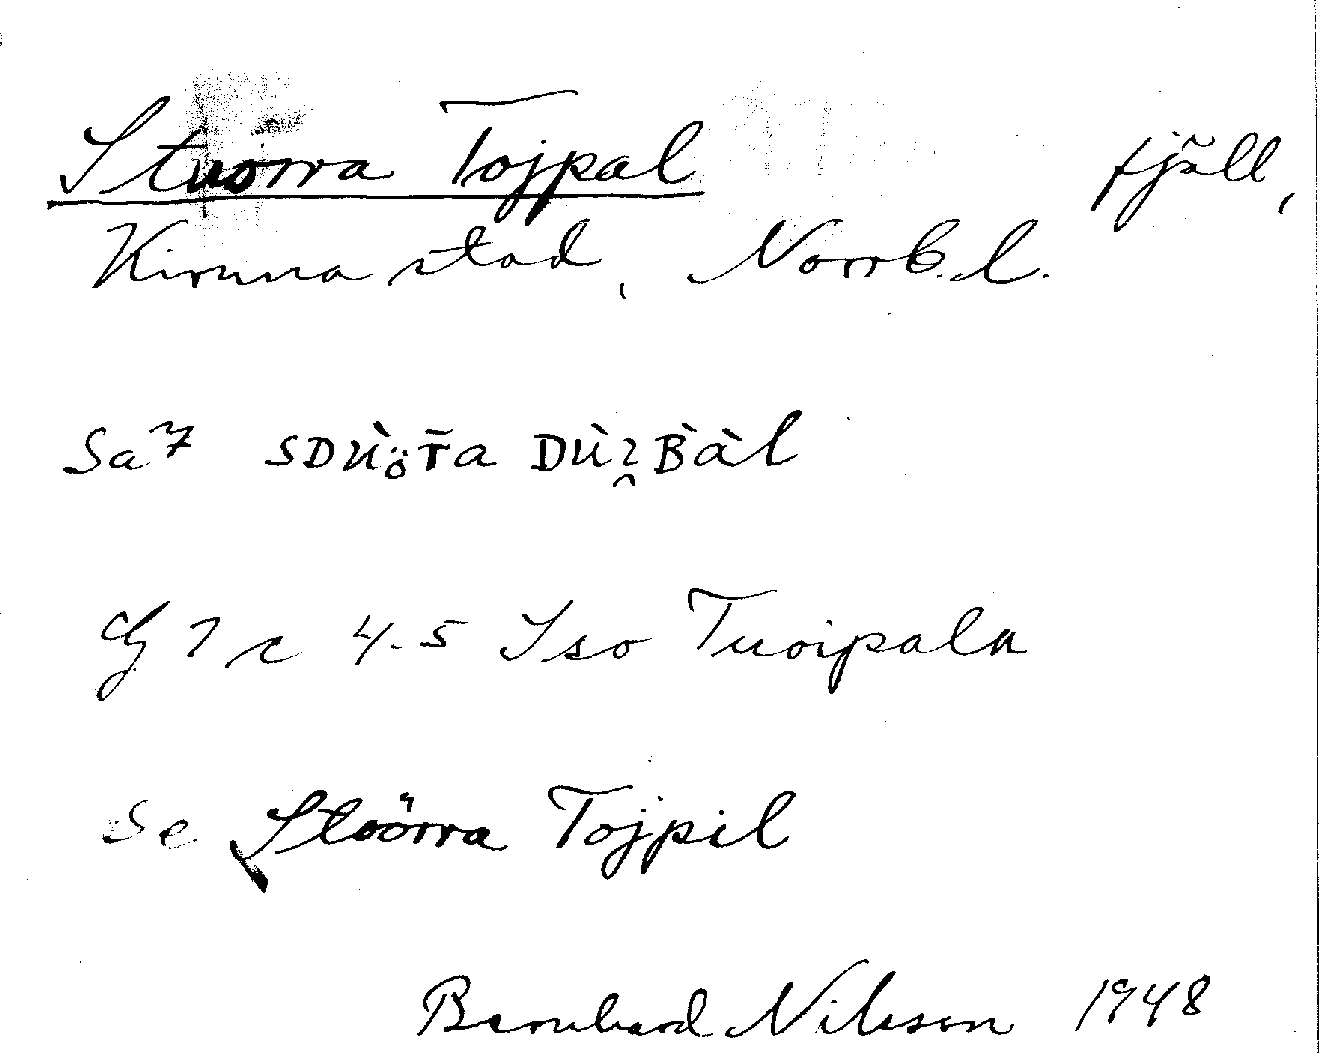 Stuorra Tojpal fjäll,
Kiruna stad, Norrb. l.
Sa 7 SDÙö̤r̄a DÙ B̀àl
G 7 c 4-5 Iso Tuoipala
se Stoörra Tojpil
Bernhard Nilsson 1948